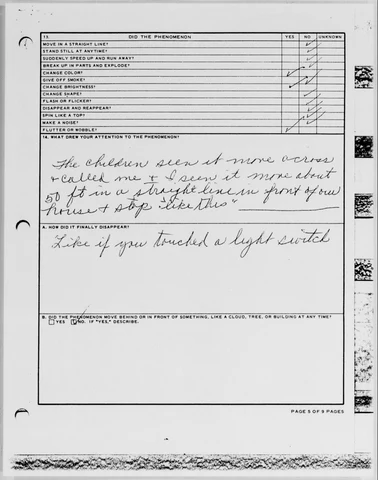 13. DID THE PHENOMENON YES NO UNKNOWN
MOVE IN A STRAIGHT LINE?
STAND STILL AT ANYTIME?
SUDDENLY SPEED UP AND RUN AWAY?
BREAK UP IN PARTS AND EXPLODE?
CHANGE COLOR?
GIVE OFF SMOKE?
CHANGE BRIGHTNESS?
CHANGE SHAPE?
FLASH OR FLICKER?
DISAPPEAR AND REAPPEAR?
SPIN LIKE A TOP?
MAKE A NOISE?
FLUTTER OR WOBBLE?
14. WHAT DREW YOUR ATTENTION TO THE PHENOMENON?
The children seen it move across
+ called me + I seen it move about
50 ft in a straight line in front of our
house + stop "like this"
A. HOW DID IT FINALLY DISAPPEAR?
Like if you touched a light switch
B. DID THE PHENOMENON MOVE BEHIND OR IN FRONT OF SOMETHING, LIKE A CLOUD, TREE, OR BUILDING AT ANY TIME?
YES NO. IF "YES," DESCRIBE.
PAGE 5 OF 9 PAGES